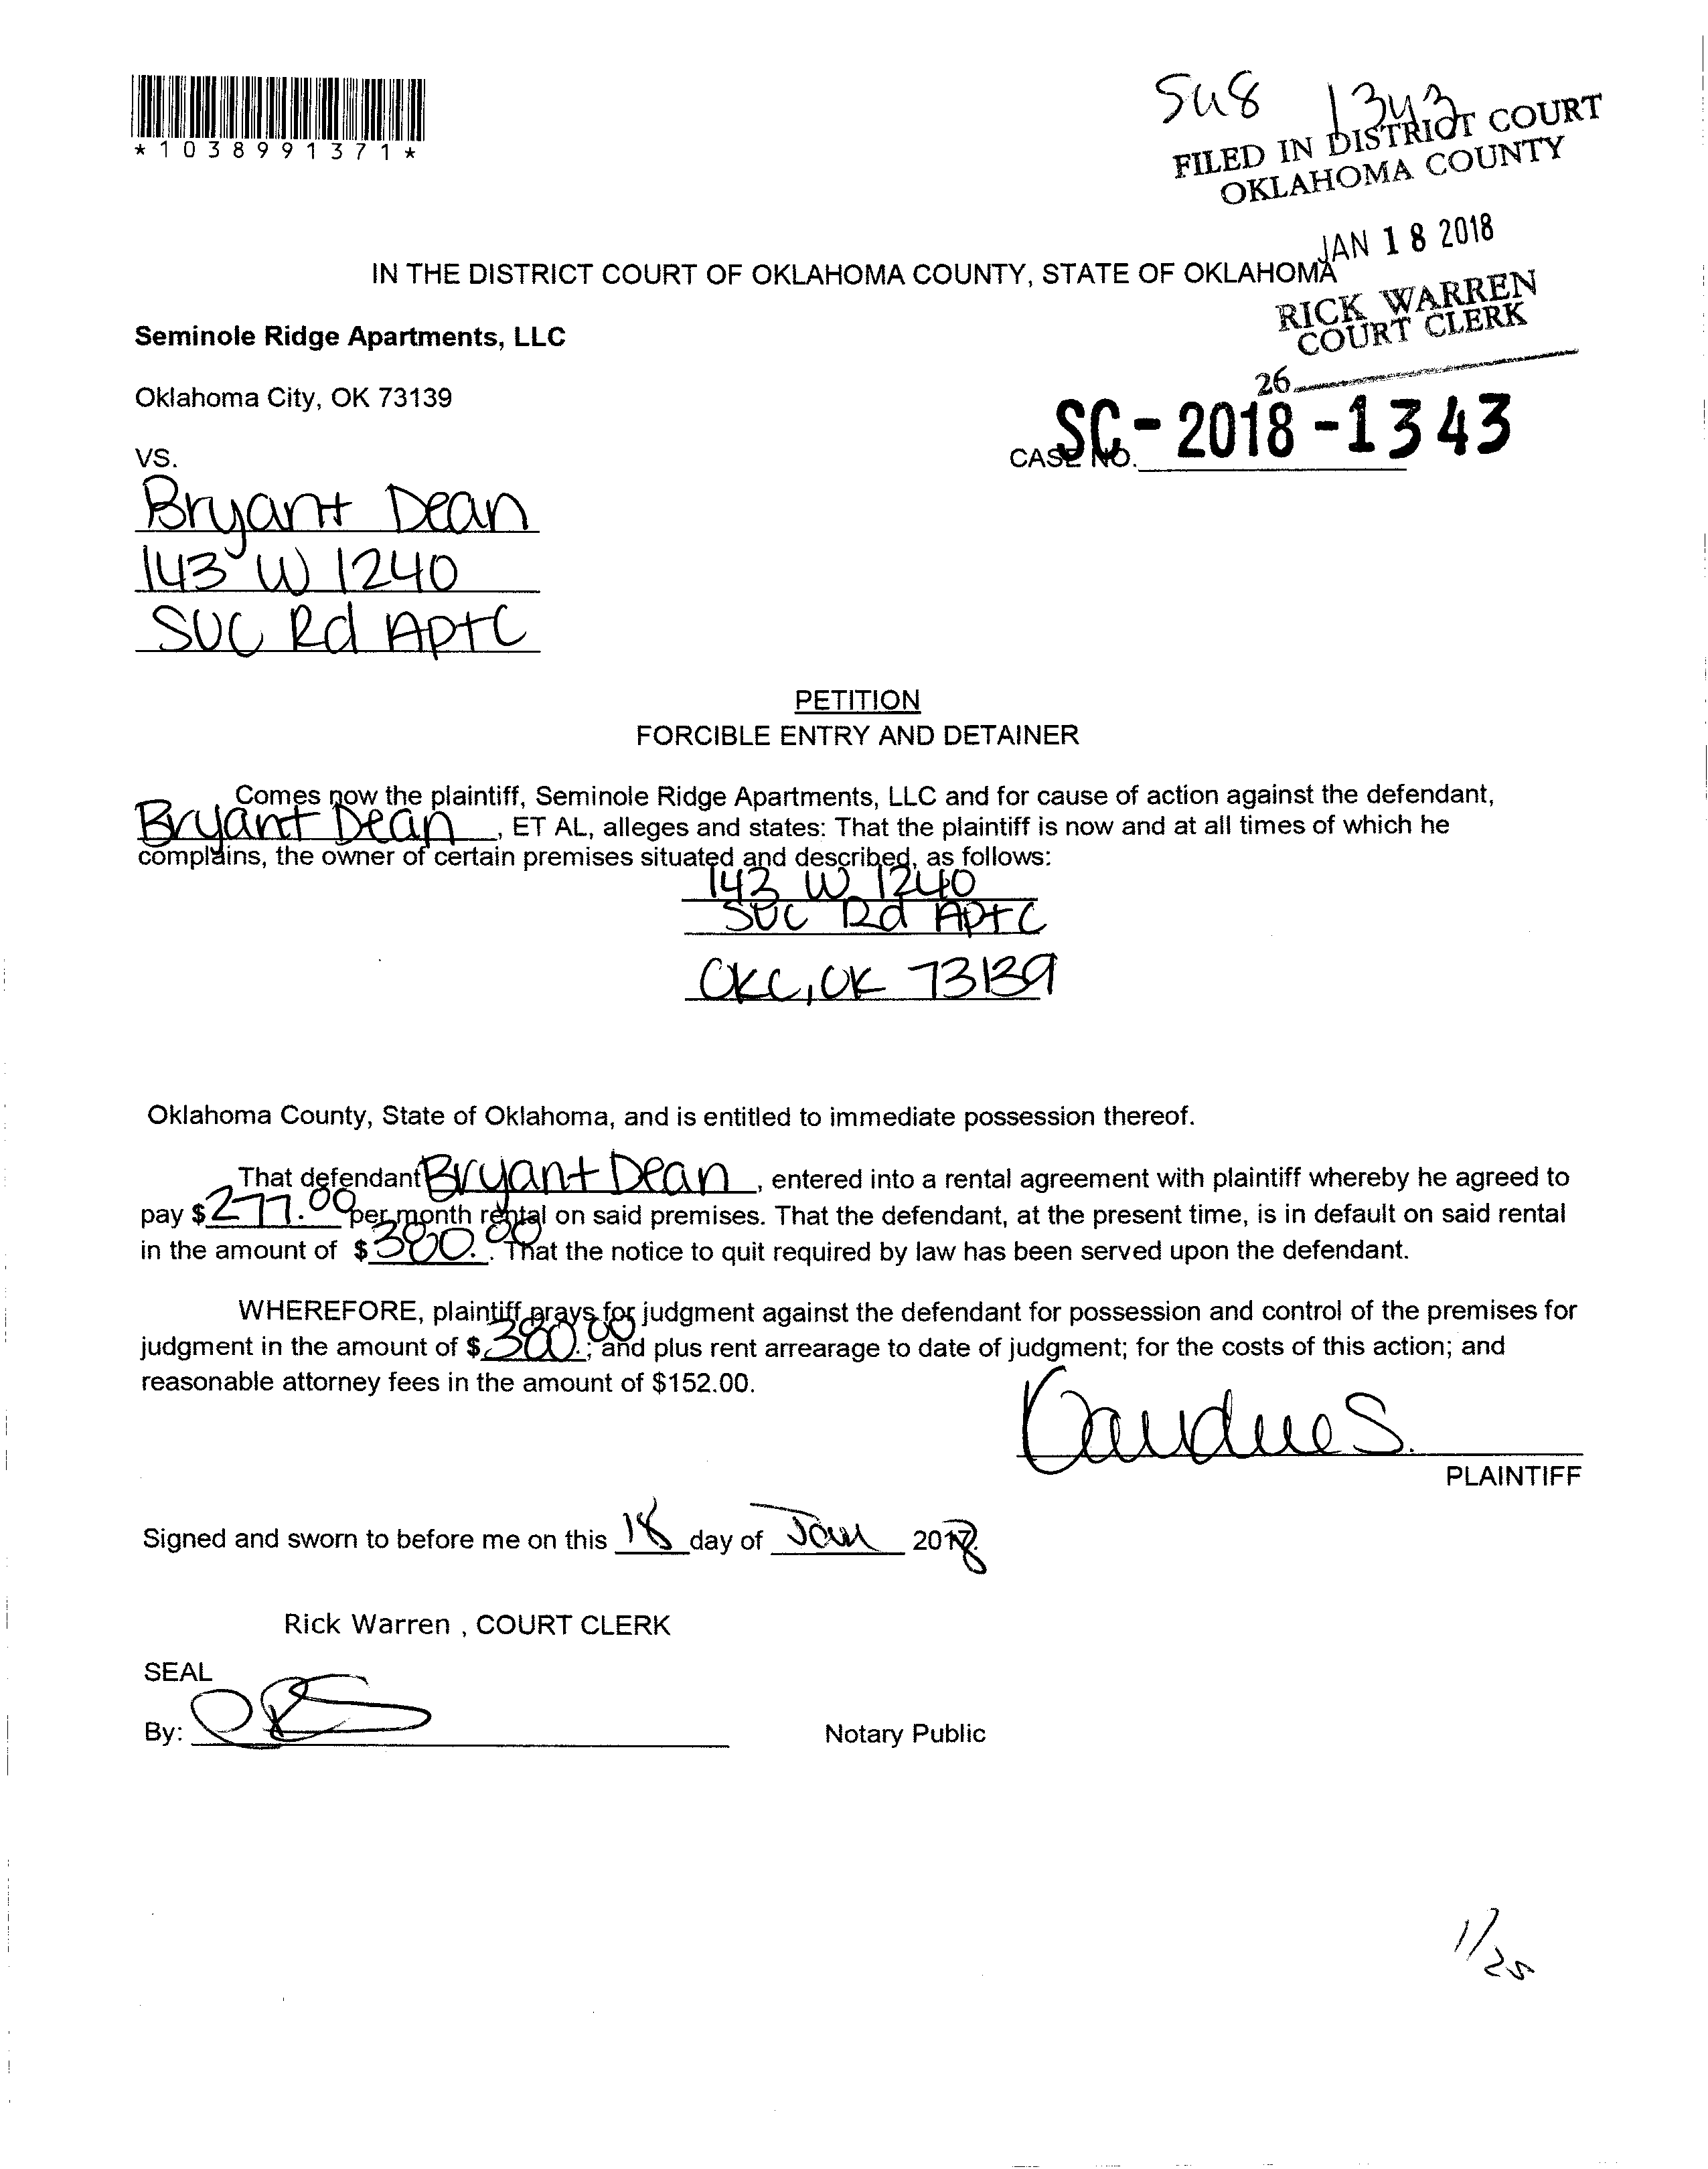 *1038991371*
Su8 1343
FILED IN DISTRICT COURT
OKLAHOMA COUNTY
JAN 18 2018
IN THE DISTRICT COURT OF OKLAHOMA COUNTY, STATE OF OKLAHOMA
RICK WARREN
COURT CLERK
Seminole Ridge Apartments, LLC
26
Oklahoma City, OK 73139
CASE NO. SC-2018-1343
VS.
Bryant Dean
143 W 1240
SUC Rd Apt C
PETITION
FORCIBLE ENTRY AND DETAINER
Comes now the plaintiff, Seminole Ridge Apartments, LLC and for cause of action against the defendant,
Bryant Dean, ET AL, alleges and states: That the plaintiff is now and at all times of which he
complains, the owner of certain premises situated and described, as follows:
143 W 1240
SUC Rd Apt C
OKC, OK 73139
Oklahoma County, State of Oklahoma, and is entitled to immediate possession thereof.
That defendant Bryant Dean, entered into a rental agreement with plaintiff whereby he agreed to
pay $277.00 per month rental on said premises. That the defendant, at the present time, is in default on said rental
in the amount of $380.00. That the notice to quit required by law has been served upon the defendant.
WHEREFORE, plaintiff prays for judgment against the defendant for possession and control of the premises for
judgment in the amount of $380.00.; and plus rent arrearage to date of judgment; for the costs of this action; and
reasonable attorney fees in the amount of $152.00.
PLAINTIFF
Signed and sworn to before me on this 18 day of Jan 2018.
Rick Warren , COURT CLERK
SEAL
By:
Notary Public
1/25